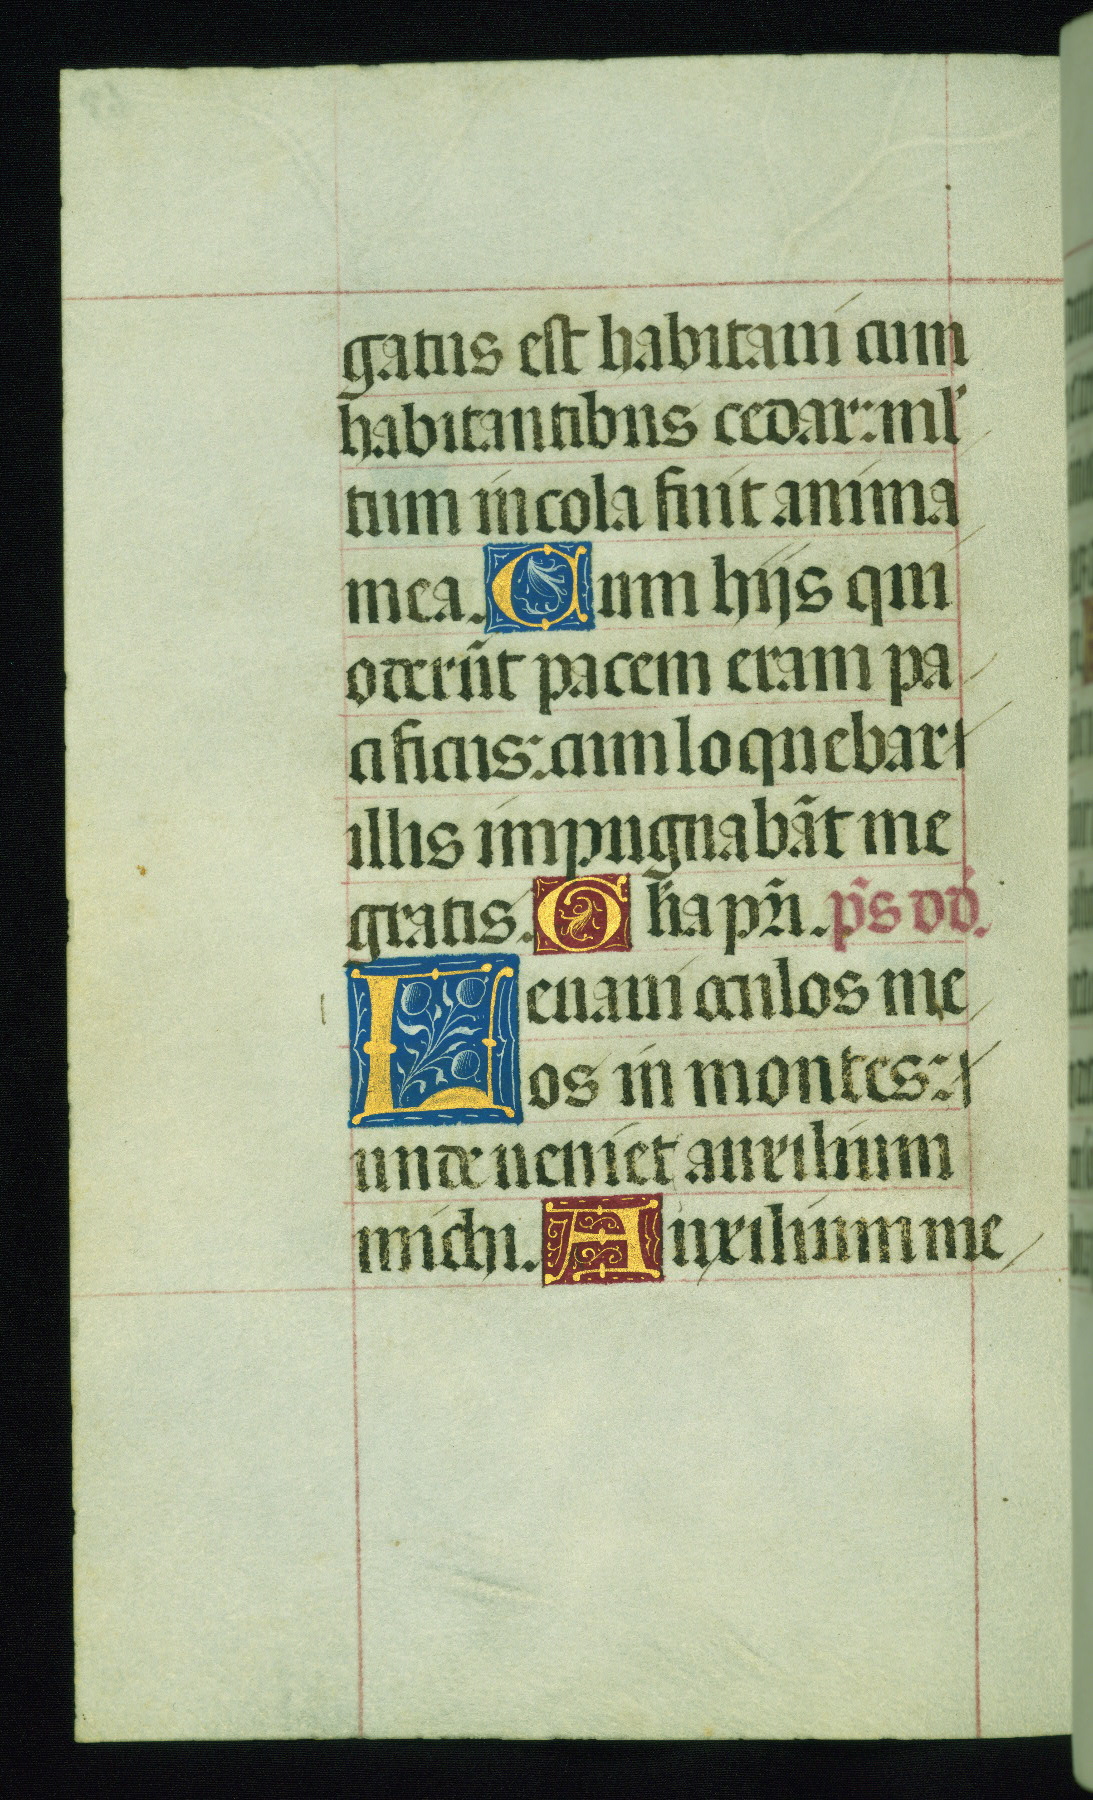 gatus est habitaui cum
habitantibus cedar: ml̕
tum incola fuit anima
mea. Cum hijs qui
oderūt pacem eram pa
cificus: cum loquebar
illis impugnabāt me
gratis. G̅lia pr̄i. ps̄ dd̄.
Leuaui oculos me
os in montes:
unde ueniet auxilium
michi. Auxilium me